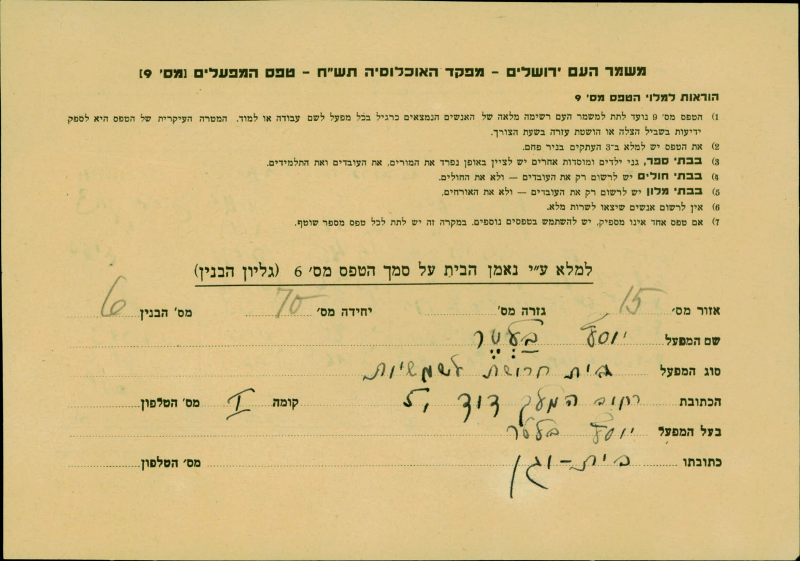 משמר העם ירושלים – מפקד האוכלוסיה תש"ח – טפס המפעלים [מס' 9]
הוראות למלוי הטפס מס' 9
1) הטפס מס' 9 נועד לתת למשמר העם רשימה מלאה של האנשים הנמצאים כרגיל בכל מפעל לשם עבודה או למוד. המטרה העיקרית של הטפס היא לספק
ידיעות בשביל הצלה או הושטת עזרה בשעת הצורך.
2) את הטפס יש למלא ב־3 העתקים בניר פחם.
3) בבתי ספר, גני ילדים ומוסדות אחרים יש לציין באופן נפרד את המורים, את העובדים ואת התלמידים.
4) בבתי חולים יש לרשום רק את העובדים — ולא את החולים.
5) בבתי מלון יש לרשום רק את העובדים — ולא את האורחים.
6) אין לרשום אנשים שיצאו לשרות מלא.
7) אם טפס אחד אינו מספיק, יש להשתמש בטפסים נוספים. במקרה זה יש לתת לכל טפס מספר שוטף.
למלא ע"י נאמן הבית על סמך הטפס מס' 6 (גליון הבנין)
אזור מס' 15 גזרה מס' יחידה מס' 70 מס' הבנין 6
שם המפעל יוסף
סוג המפעל בית חרושת לשמשיות
הכתובת רחוב המלך דוד 5, קומה I מס' הטלפון
בעל המפעל יוסף
כתובתו בית-וגן מס' הטלפון